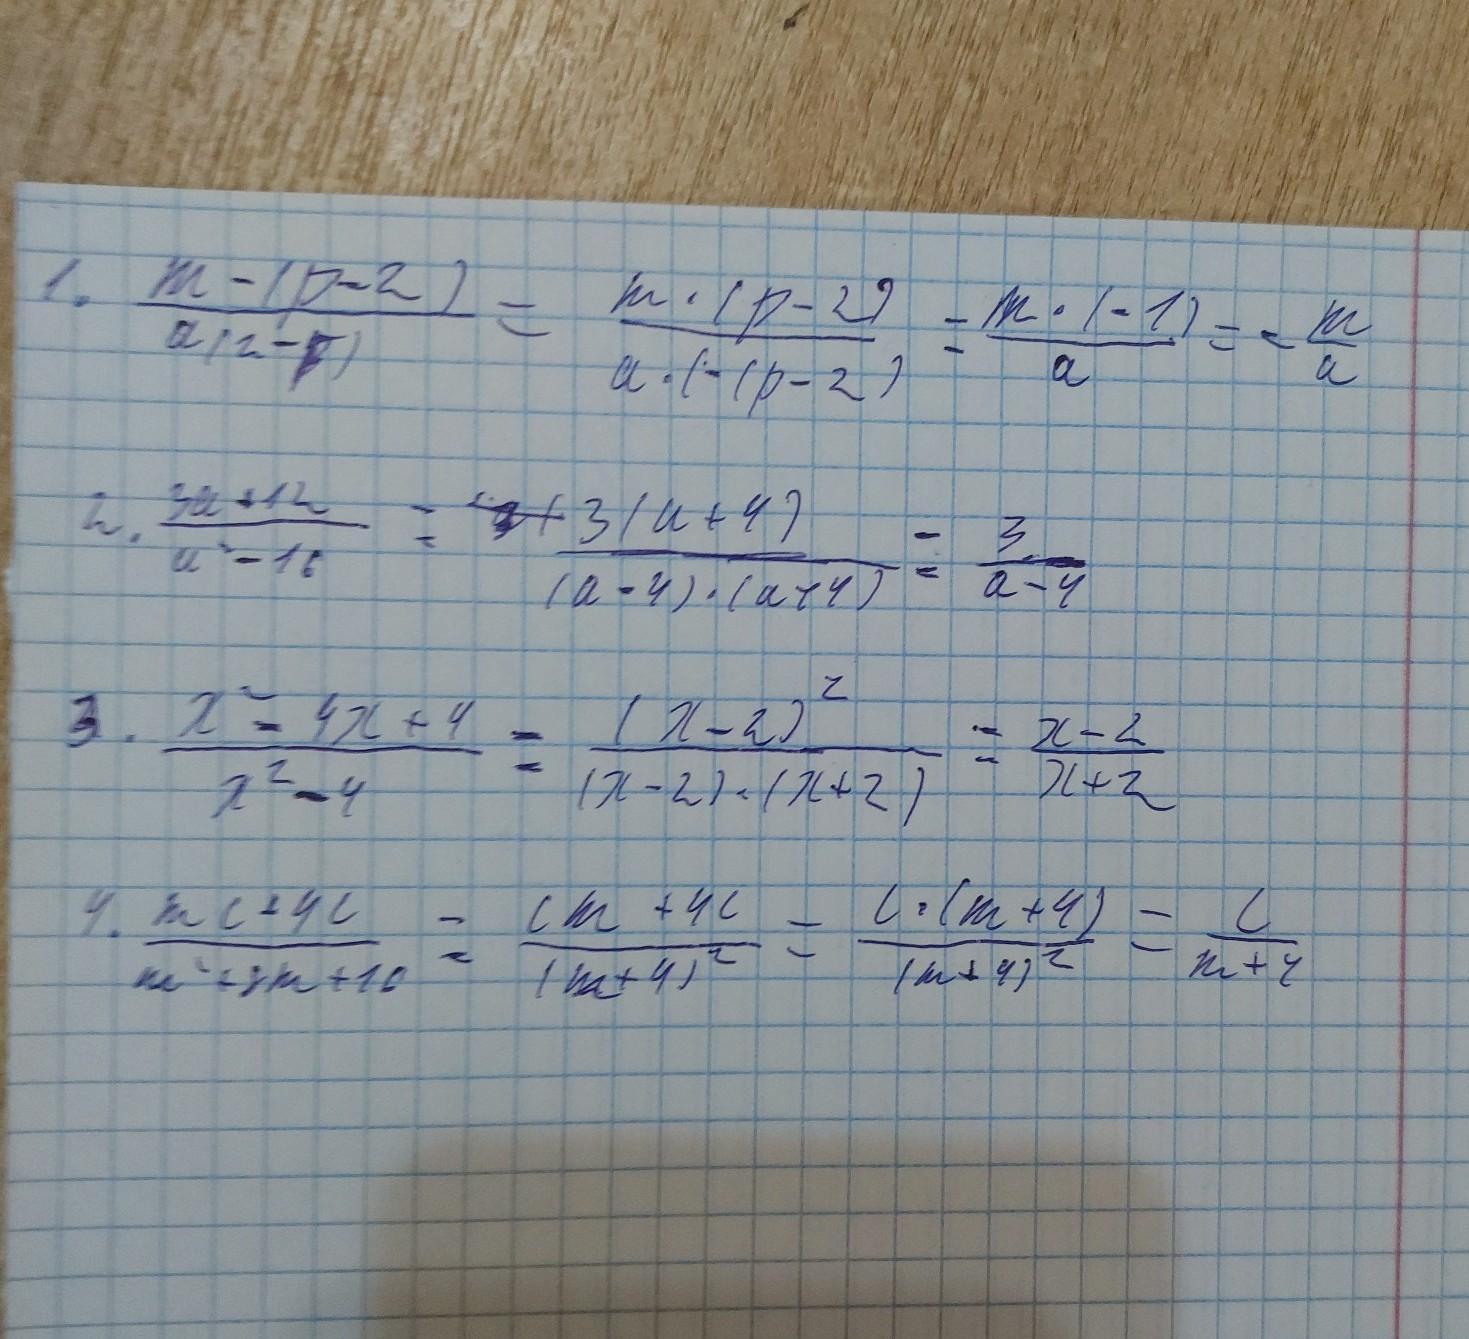 1. m-(p-2)/a(2-p) = m·(p-2)/a·(-(p-2) = m·(-1)/a = -m/a
2. 3a+12/a²-16 = 3(a+4)/(a-4)·(a+4) = 3/a-4
3. x²-4x+4/x²-4 = (x-2)²/(x-2)·(x+2) = x-2/x+2
4. mc+4c/m²+8m+16 = cm+4c/(m+4)² = c·(m+4)/(m+4)² = c/m+4